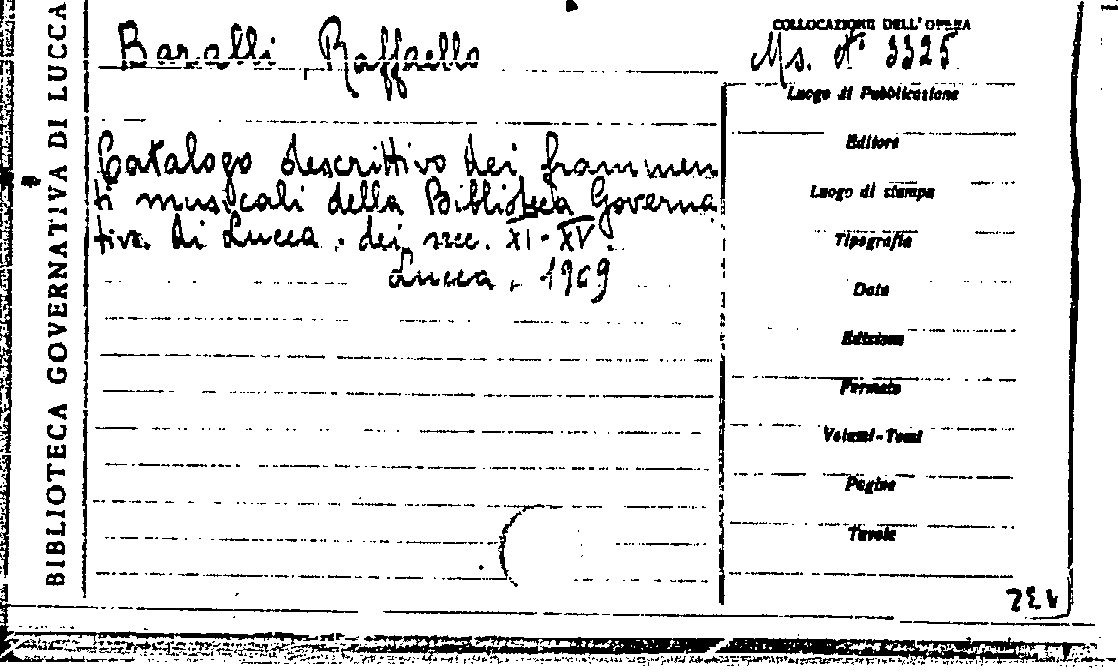 BIBLIOTECA GOVERNATIVA DI LUCCA
Baralli Raffaello
Catalogo descrittivo dei frammen
ti musicali della Biblioteca Governa
tiva di Lucca. dei secc. XI-XV.
Lucca, 1909
COLLOCAZIONE DELL'OPERA
Ms. N° 3325
Luogo di Pubblicazione
Editore
Luogo di stampa
Tipografia
Data
Edizione
Formato
Volumi-Tomi
Pagine
Tavole